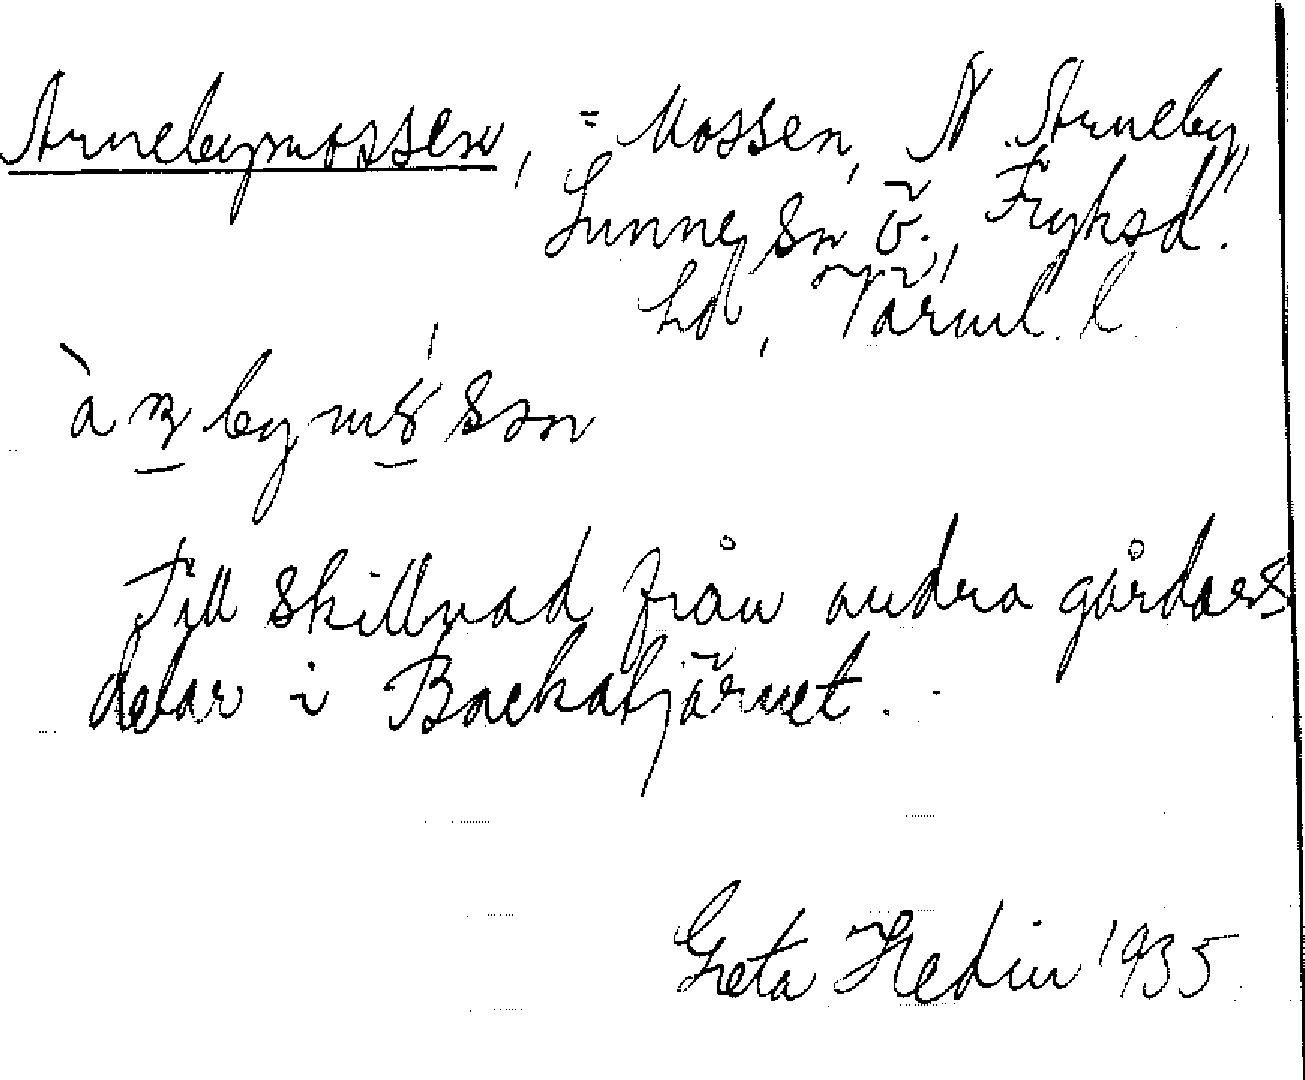 Arnebymossen, = Mossen, N Arneby,
Sunne sn Ö., Fryksd.
hd, Värml. l.
Till skillnad från andra gårdars
delar i Backatjärnet.
Greta Hedin 1935